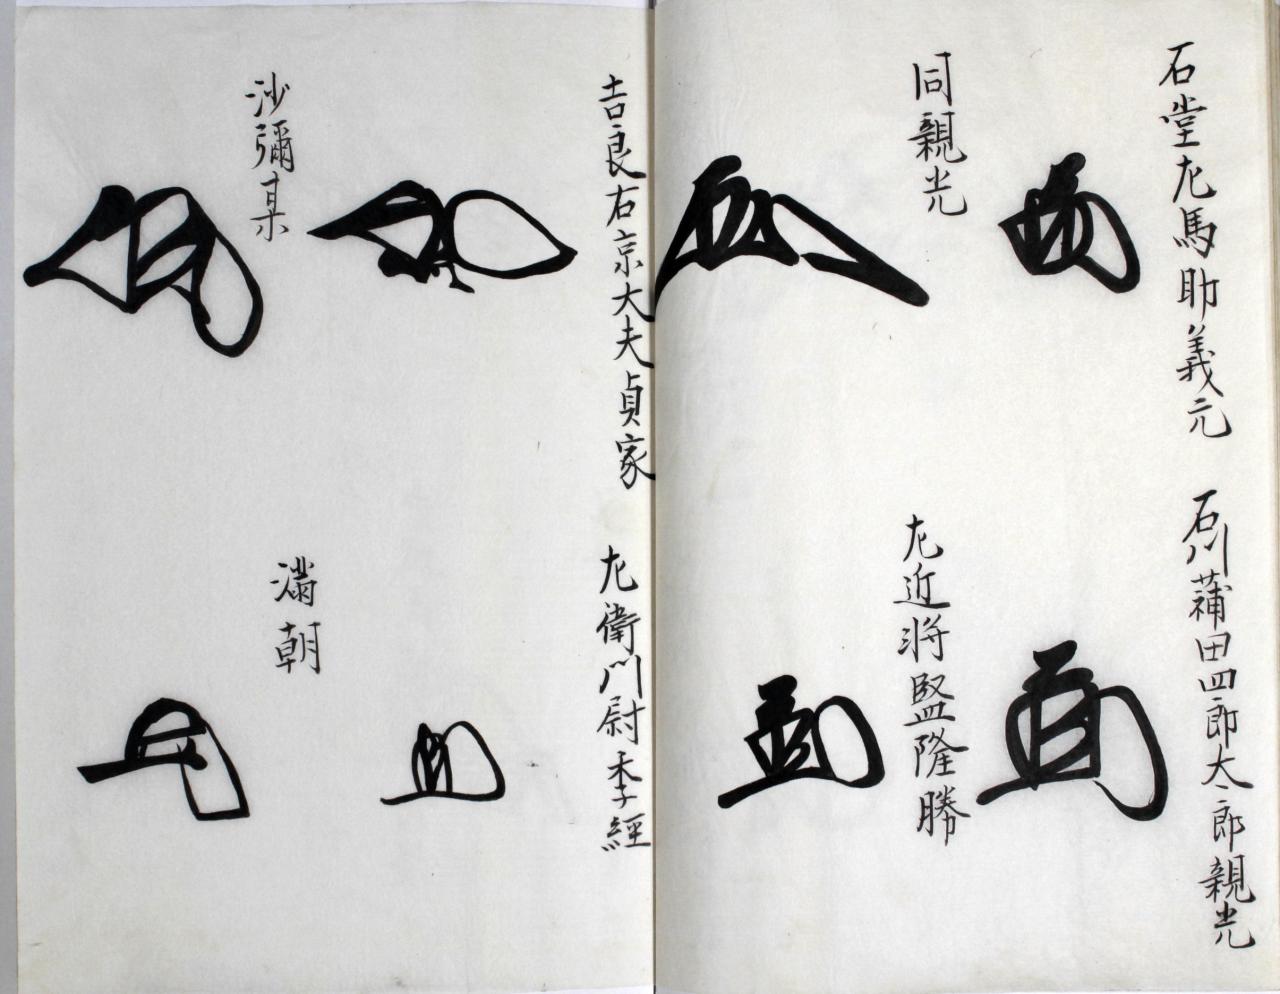 石堂左馬助義元
石川蒲田四郎太郎親光
同親光
左近将監隆勝
吉良右京大夫貞家
左衛門尉季經
沙彌某
満朝